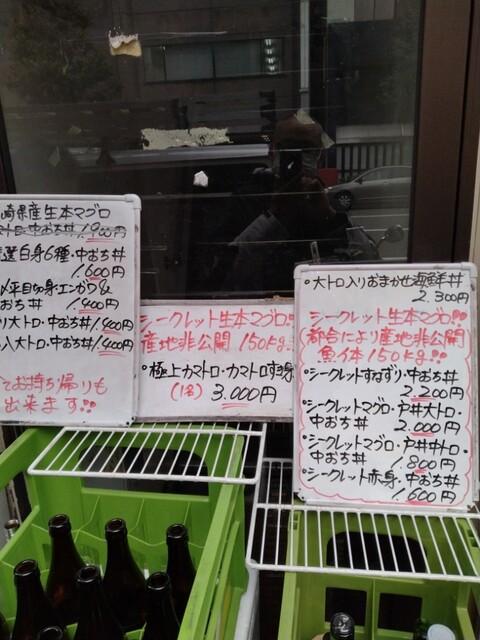 崎県産生本マグロ
トロ・中おち丼 1,900円
選白身6種・中おち丼
1,600円
平目切身エンガワ&
おち丼 1,400円
大トロ・中おち丼 1,400円
入大トロ・中おち丼 1,400円
てお持ち帰りも
出来ます!!
シークレット生本マグロ!!
産地非公開 150kg…
・極上カマトロ・カマトロすき身
(1名) 3,000円
・大トロ入りおまかせ海鮮丼
2,300円
シークレット生本マグロ!!
都合により産地非公開
魚体150kg!!
・シークレットすねずり・中おち丼
2,200円
・シークレットマグロ・戸井大トロ・
中おち丼 2,000円
・シークレットマグロ・戸井中トロ・
中おち丼 1,800円
・シークレット赤身・中おち丼
1,600円